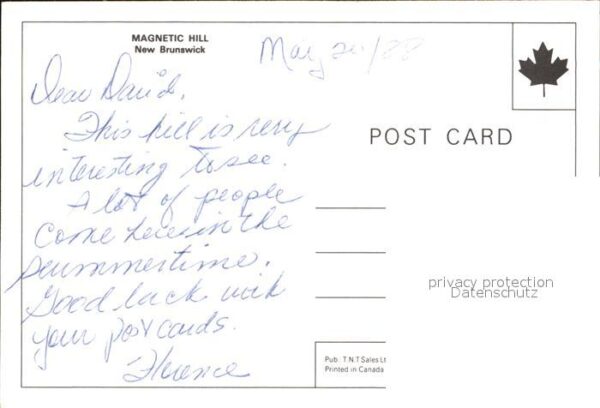 MAGNETIC HILL
New Brunswick
May 20/88
Dear David,
This hill is very
interesting to see.
A lot of people
come here in the
summertime.
Good luck with
your post cards.
Florence
POST CARD
privacy protection
Datenschutz
Pub. T.N.T Sales Lt
Printed in Canada